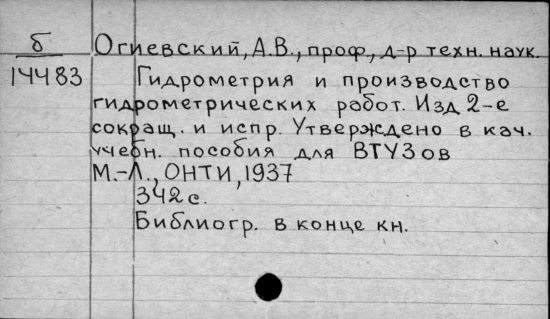 б
14483
Огиевский, А.В., проф., д-р техн. наук.
Гидрометрия и производство
гидрометрических работ. Изд 2-е
сокращ. и испр. Утверждено в кач.
учебн. пособия для ВТУЗов
М.-Л., ОНТИ, 1937
342 с.
Библиогр. в конце кн.